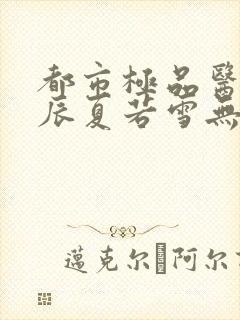 都市極品醫
辰夏若雪無
邁克尔 阿尔